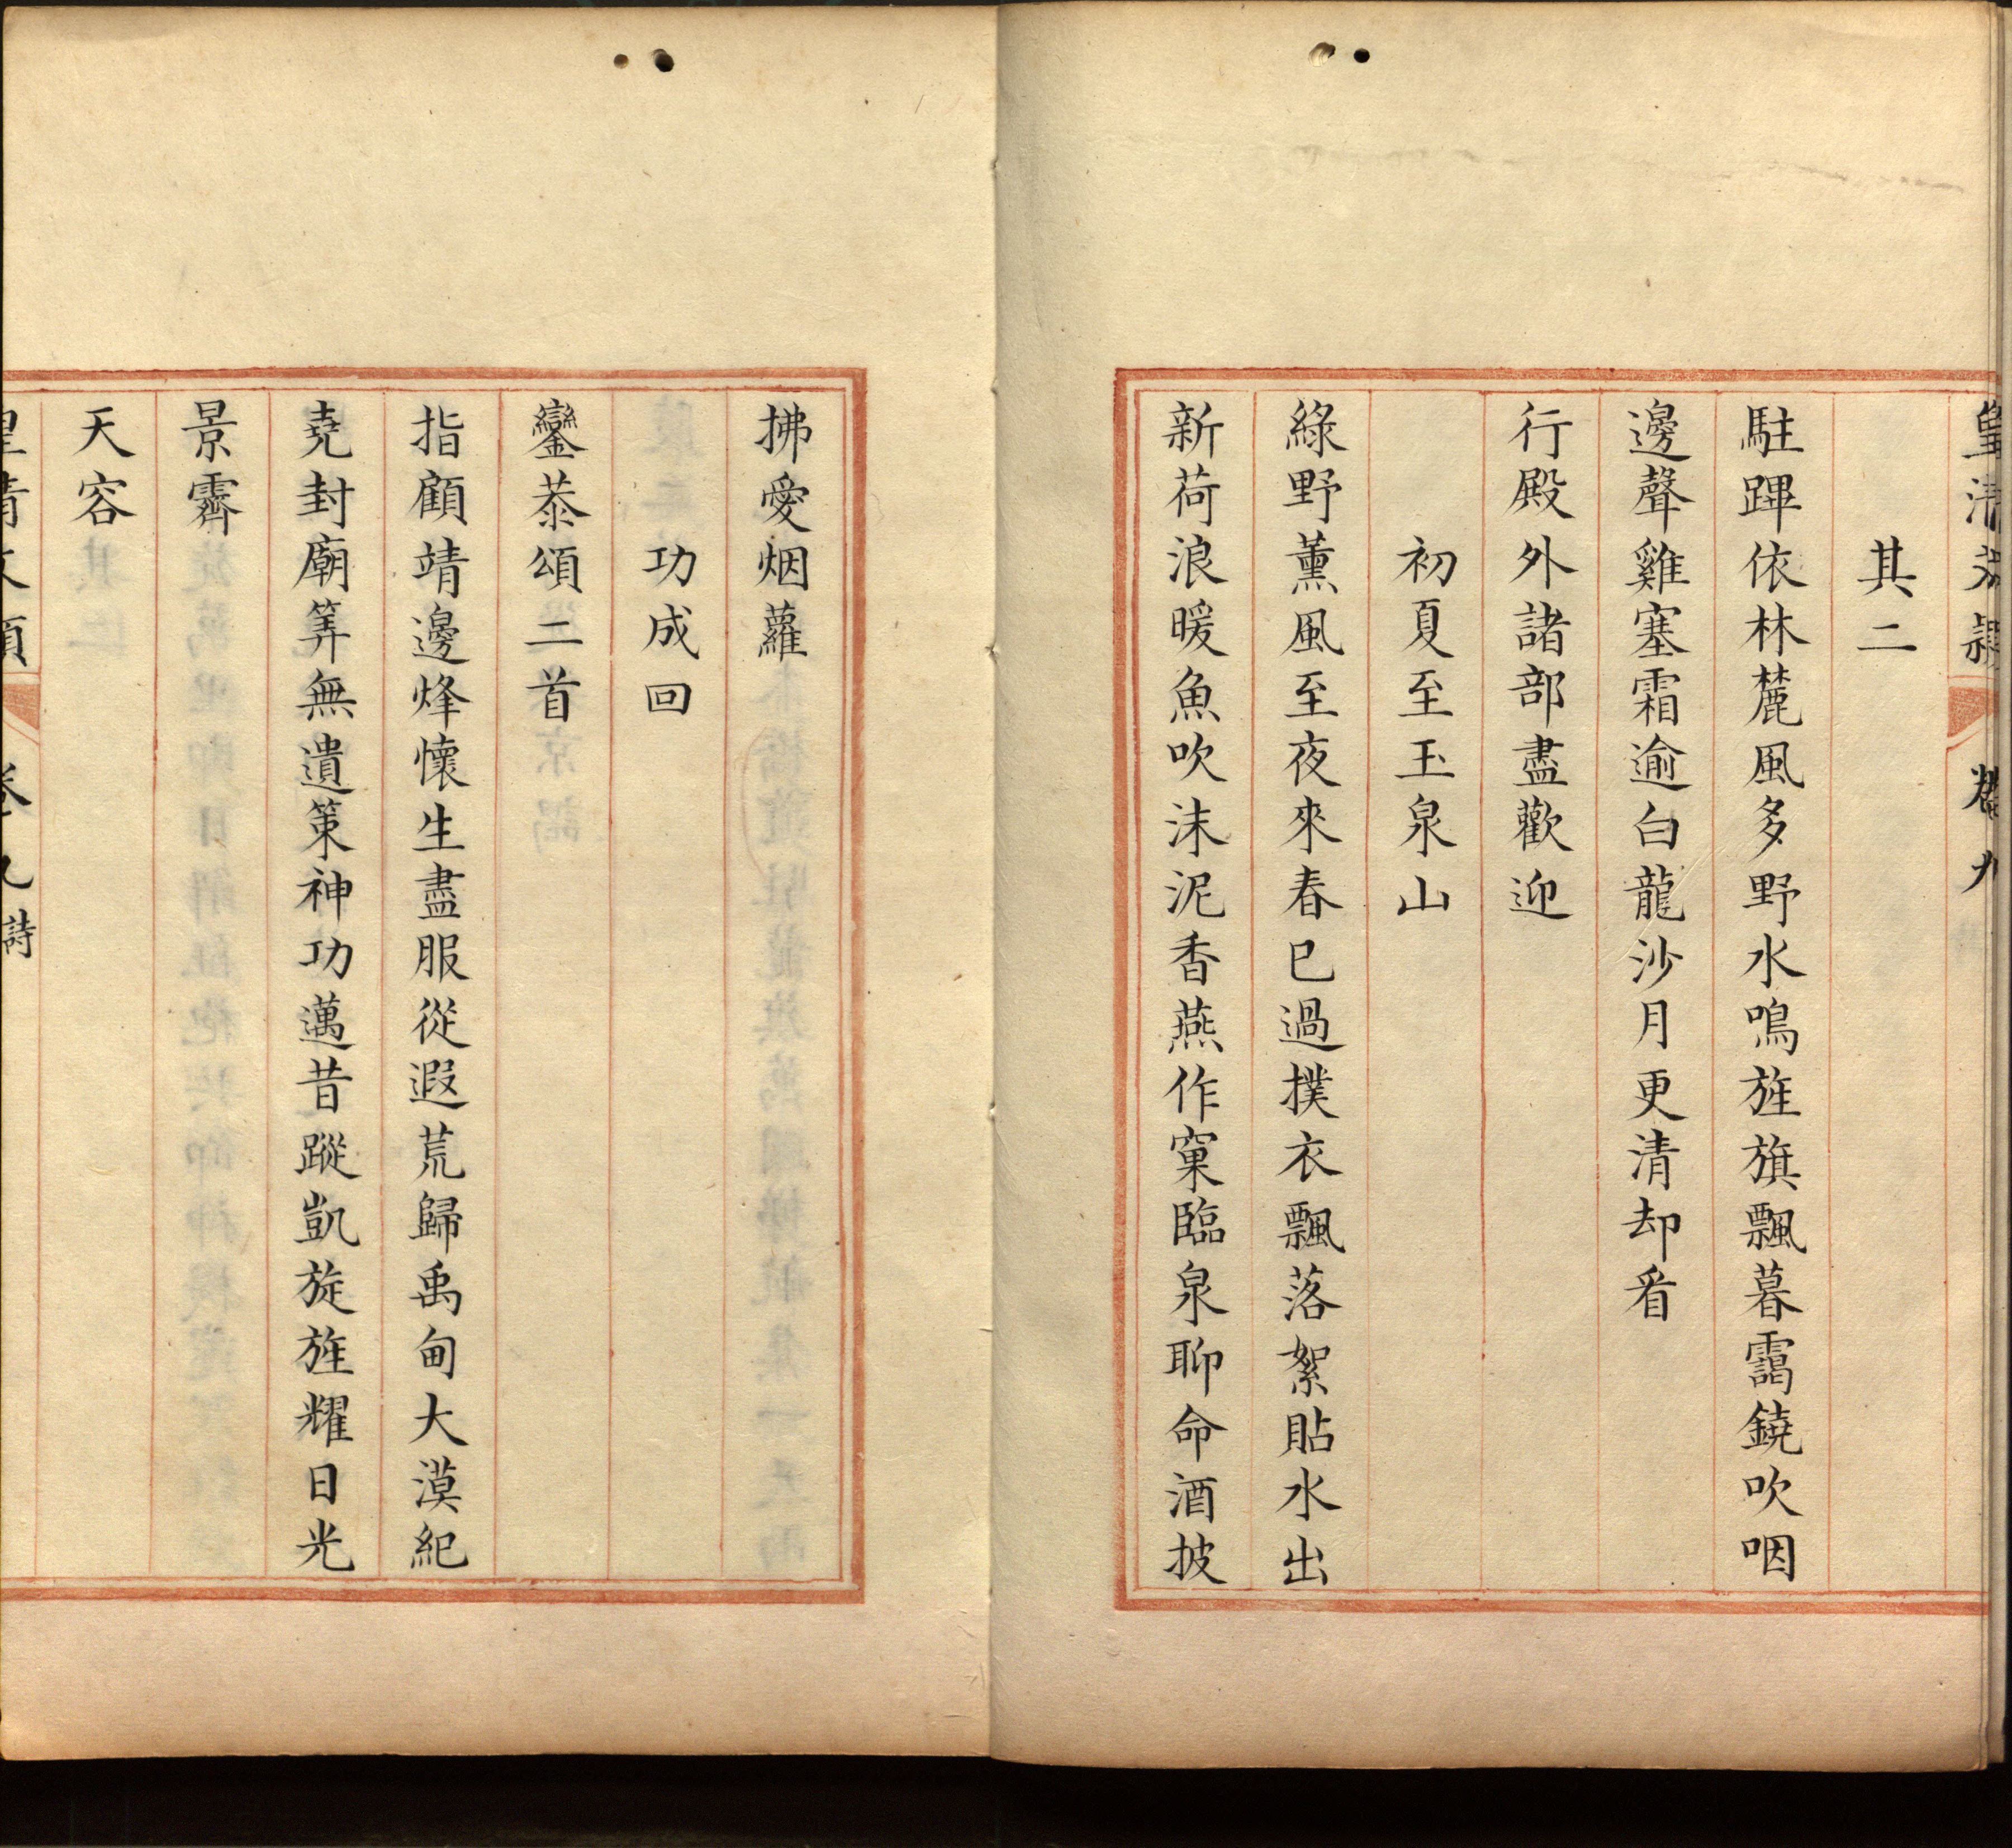 皇清文穎 卷九
其二
駐蹕依林麓風多野水鳴旌旗飄暮靄鐃吹咽
邊聲雞塞霜逾白龍沙月更清却看
行殿外諸部盡歡迎
初夏至玉泉山
綠野薰風至夜來春已過撲衣飄落絮貼水出
新荷浪暖魚吹沫泥香燕作窠臨泉聊命酒披
拂愛烟蘿
功成回
鑾恭頌二首
指顧靖邊烽懷生盡服從遐荒歸禹甸大漠紀
堯封廟筭無遺策神功邁昔蹤凱旋旌耀日光
景霽
天容
皇清文穎 卷九 詩